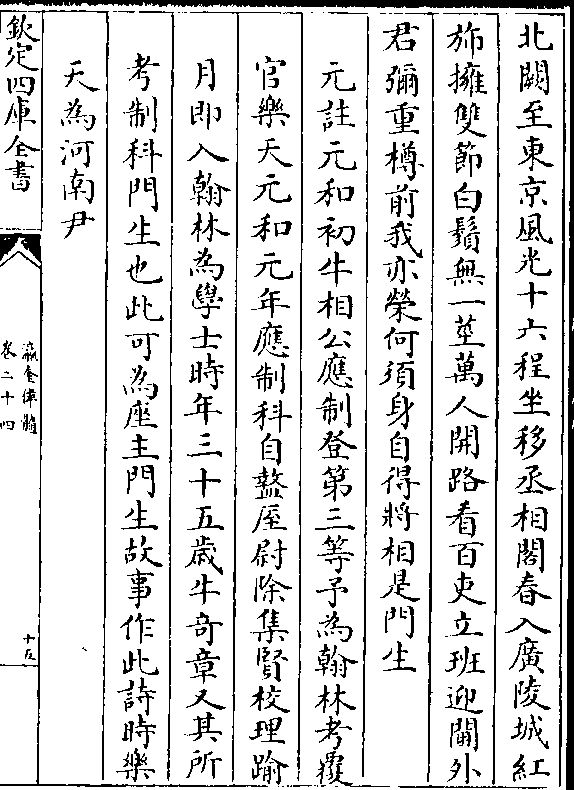 北闕至東京風光十六程坐移丞相閣春入廣陵城紅
斾擁雙節白鬚無一莖萬人開路看百吏立班迎閫外
君彌重樽前我亦榮何須身自得將相是門生
元註元和初牛相公應制登第三等予為翰林考覆
官樂天元和元年應制科自盩厔尉除集賢校理踰
月即入翰林為學士時年三十五歳牛竒章又其所
考制科門生也此可為座主門生故事作此詩時樂
天為河南尹
欽定四庫全書
瀛奎律髓
卷二十四
十五